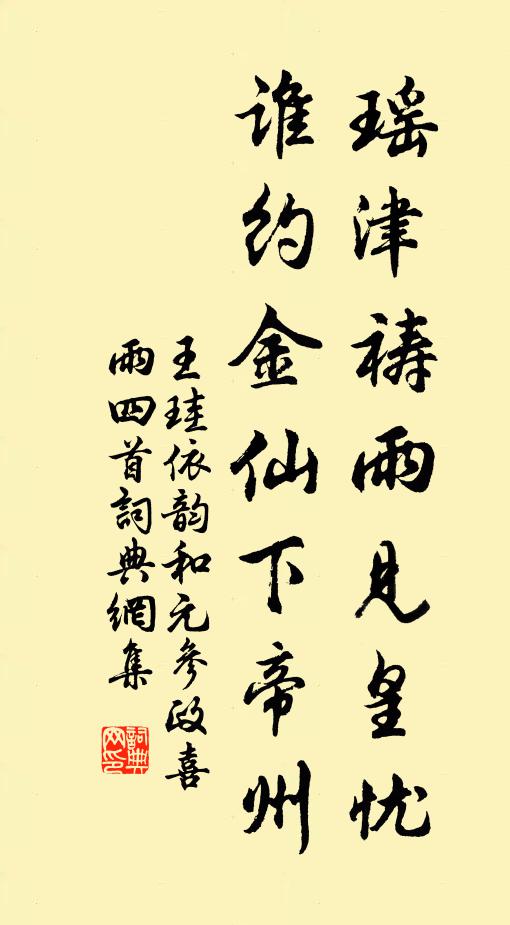 瑶津祷雨见皇忧
谁约金仙下帝州
王珪依韵和元参政喜
雨四首詞典網集
詞典网印